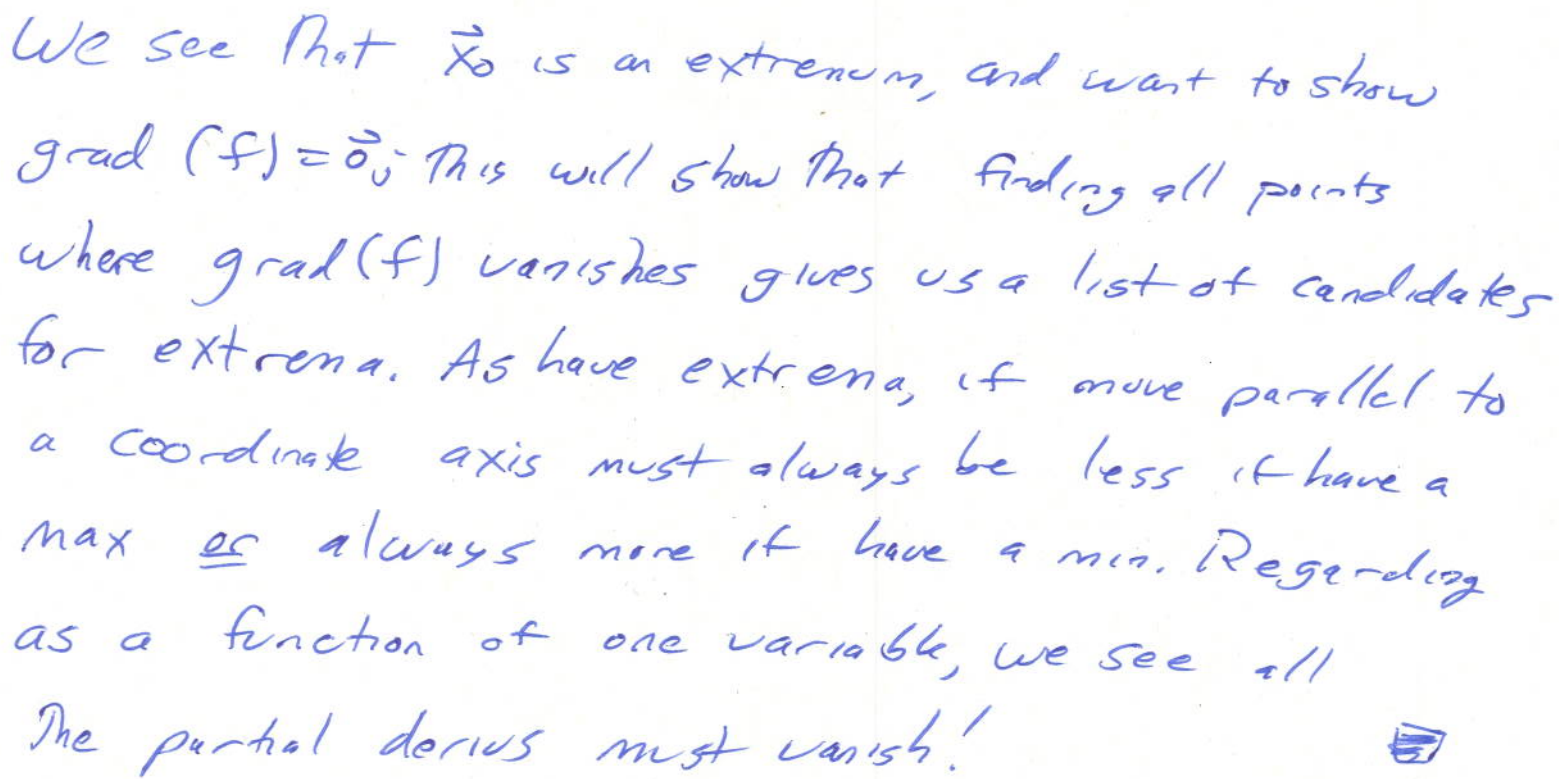 We see that x⃗₀ is an extremum, and want to show
grad (f) = 0⃗; this will show that finding all points
where grad(f) vanishes gives us a list of candidates
for extrema. As have extrema, if move parallel to
a coordinate axis must always be less if have a
max or always more if have a min. Regarding
as a function of one variable, we see all
the partial derivs must vanish!